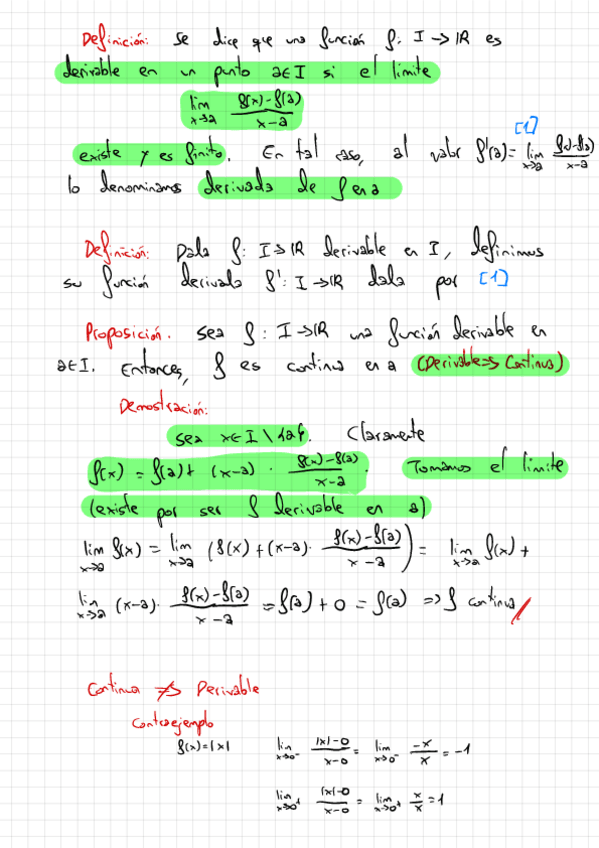 Definición: Se dice que una función f: I → ℝ es
derivable en un punto a ∈ I si el límite
lim_{x→a} (f(x) - f(a))/(x - a)
[1]
existe y es finito. En tal caso, al valor f'(a) = lim_{x→a} (f(x) - f(a))/(x - a)
lo denominamos derivada de f en a
Definición: Dada f: I → ℝ derivable en I, definimos
su función derivada f': I → ℝ dada por [1]
Proposición. Sea f: I → ℝ una función derivable en
a ∈ I. Entonces, f es continua en a (Derivable ⇒ Continua)
Demostración:
Sea x ∈ I \ {a}. Claramente
f(x) = f(a) + (x - a) · (f(x) - f(a))/(x - a). Tomamos el límite
(existe por ser f derivable en a)
lim_{x→a} f(x) = lim_{x→a} (f(x) + (x - a) · (f(x) - f(a))/(x - a)) = lim_{x→a} f(x) +
lim_{x→a} (x - a) · (f(x) - f(a))/(x - a) = f(a) + 0 = f(a) ⇒ f continua
Continua ⇏ Derivable
Contraejemplo
f(x) = |x| lim_{x→0⁻} (|x| - 0)/(x - 0) = lim_{x→0⁻} -x/x = -1
lim_{x→0⁺} (|x| - 0)/(x - 0) = lim_{x→0⁺} x/x = 1